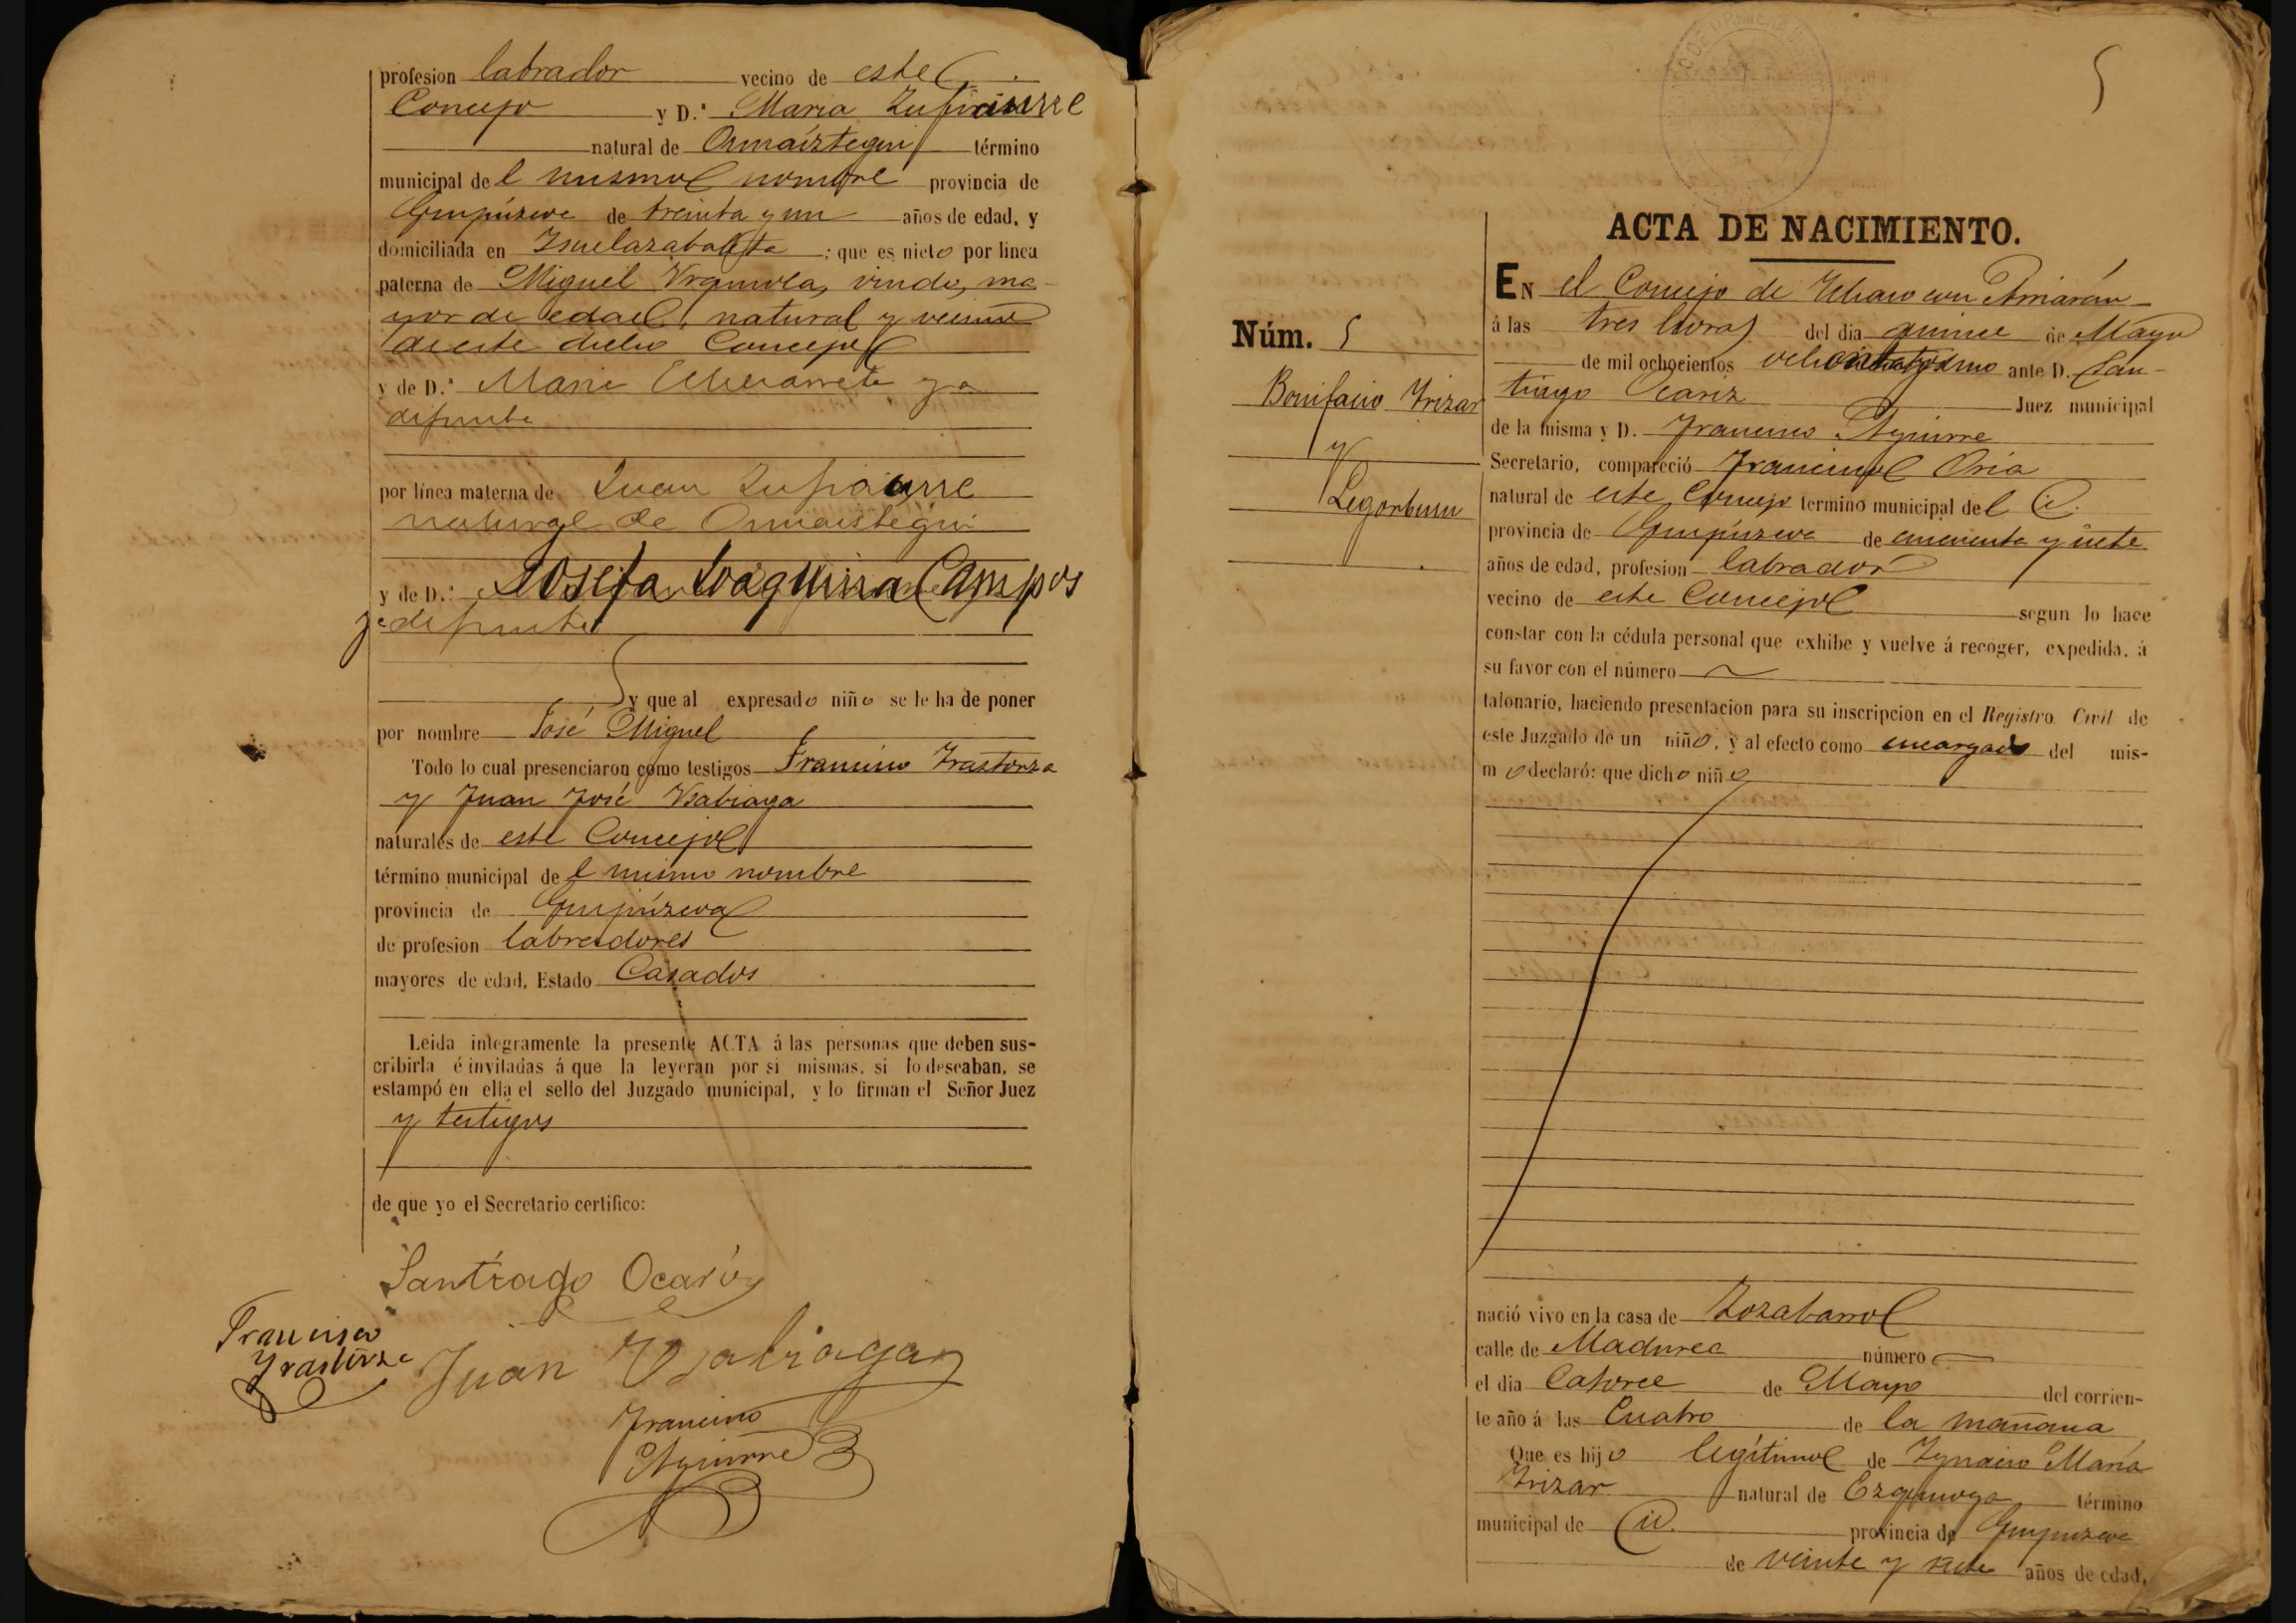 profesion labrador vecino de este
Concejo y D.ª Maria Zufiaurre
natural de Ormáiztegui término
municipal de l mismo nombre provincia de
Guipúzcoa de treinta y un años de edad, y
domiciliada en ; que es nieto por línea
paterna de Miguel Urquiola, viudo, ma-
yor de edad, natural y vecino
de este dicho Concejo
y de D.ª Maria Echezarreta ya
difunta
por línea materna de Juan Zufiaurre
natural de Ormaiztegui
y de D.ª Josefa Joaquina Campos
ya difunta
y que al expresado niño se le ha de poner
por nombre José Miguel
Todo lo cual presenciaron como testigos Francisco Irastorza
y Juan José Usabiaga
naturales de este Concejo
término municipal de l mismo nombre
provincia de Guipúzcoa
de profesion labradores
mayores de edad, Estado Casados
Leida integramente la presente ACTA á las personas que deben sus-
cribirla é invitadas á que la leyeran por sí mismas, si lo deseaban, se
estampó en ella el sello del Juzgado municipal, y lo firman el Señor Juez
y testigos
de que yo el Secretario certifico:
Santiago Ocariz
Francisco
Irastorza
Juan Usabiaga
Francisco
Aguirre
5
ACTA DE NACIMIENTO.
EN el Concejo de Ichaso con Arriarán
á las tres horas del dia quince de Mayo
de mil ochocientos ochenta y uno ante D. San-
tiago Ocariz Juez municipal
de la misma y D. Francisco Aguirre
Secretario, compareció Francisco Oria
natural de este Concejo termino municipal de l id.
provincia de Guipúzcoa de cincuenta y siete
años de edad, profesion labrador
vecino de este Concejo segun lo hace
constar con la cédula personal que exhibe y vuelve á recoger, expedida, á
su favor con el número
talonario, haciendo presentacion para su inscripcion en el Registro Civil de
este Juzgado de un niño, y al efecto como encargado del mis-
mo declaró: que dicho niño
Núm. 5
Bonifacio Irizar
y
Legorburu
nació vivo en la casa de Zozabarro
calle de Madurea número
el dia Catorce de Mayo del corrien-
te año á las Cuatro de la mañana
Que es hijo legítimo de Ygnacio María
Irizar natural de Ezquioga término
municipal de id. provincia de Guipúzcoa
de veinte y siete años de edad,